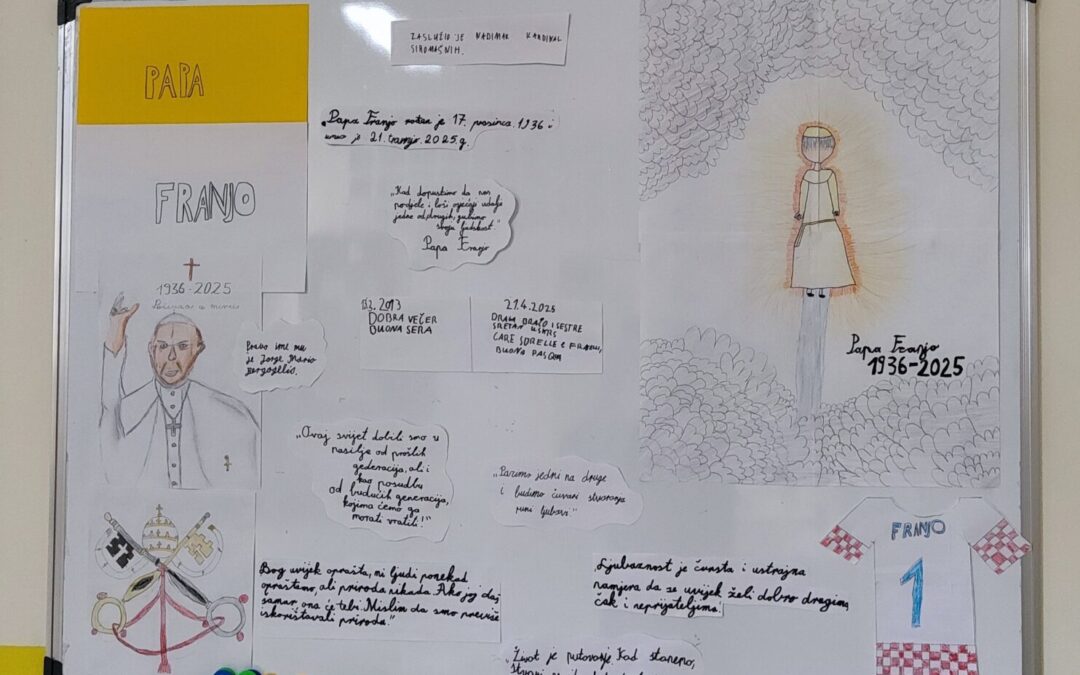 PAPA
FRANJO
1936-2025
Počivao u miru
ZASLUŽIO JE NADIMAK KARDINAL
SIROMAŠNIH.
"Papa Franjo rođen je 17. prosinca 1936 i
umro je 21. travnja 2025.g.
"Kad dopustimo da nas
podjele i loši osjećaji udalje
jedne od drugih, gubimo
svoju ljudskost."
Papa Franjo
Pravo ime mu
je Jorge Mario
Bergogllio.
2013
DOBRA VEČER
BUONA SERA
21.4.2025
DRAGA BRAĆO I SESTRE
SRETAN USKRS
CARE SORELLE E FRATELLI,
BUONA PASQUA
Papa Franjo
1936-2025
"Ovaj svijet dobili smo u
nasilje od prošlih
gederacija, ali i
kao posudbu
od budućih generacija,
kojima ćemo ga
morati vratiti!"
"Pazimo jedni na druge
i budimo čuvari stvorenja
puni ljubavi."
Bog uvijek oprašta, mi ljudi ponekad
opraštamo, ali priroda nikada. Ako joj daj
šamar ona će tebi. Mislim da smo previše
iskorištavali prirodu."
Ljubaznost je čvrsta i ustrajna
namjera da se uvijek želi dobro drugima,
čak i neprijateljima.
"Život je putovanje. Kad stanemo,
FRANJO
1